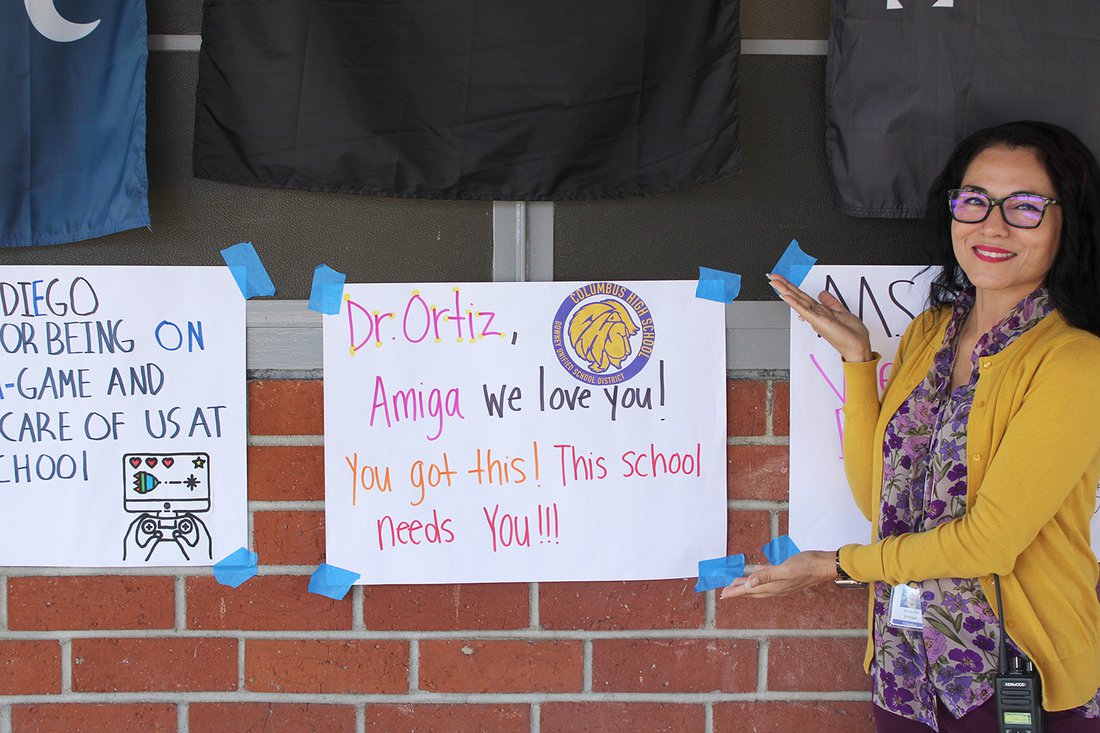 DIEGO
OR BEING ON
-GAME AND
CARE OF US AT
CHOOL
Dr. Ortiz,
COLUMBUS HIGH SCHOOL
DOWNEY UNIFIED SCHOOL DISTRICT
Amiga we love you!
You got this! This school
needs You!!!
M.S.
KENWOOD